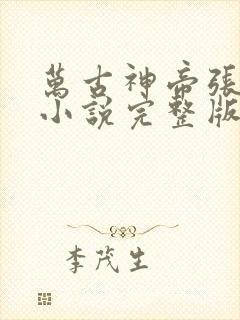 萬古神帝張
小說完整版
李茂生